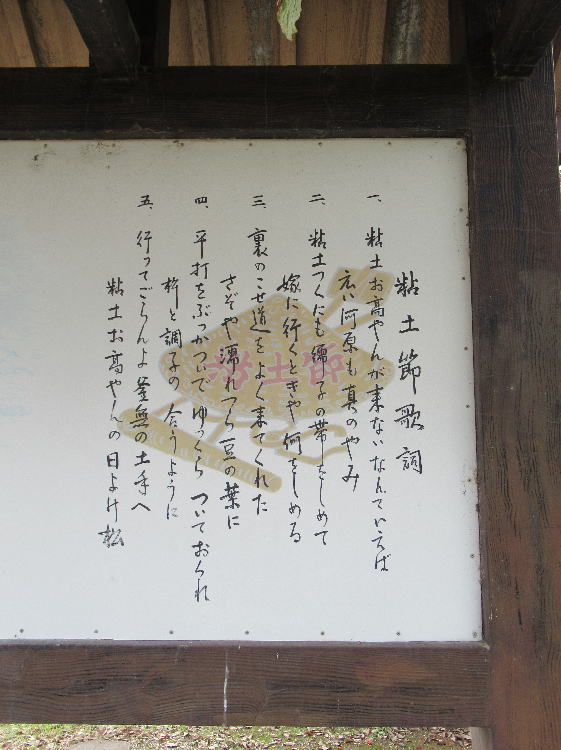 粘土節歌詞
一、粘土お高やんが来ないなんていえば
広い河原も真のやみ
二、粘土つくにも繻子の帯をしめて
嫁に行くときや何をしめる
三、裏のこせ道をよく来てくれた
さぞや濡れつら豆の葉に
四、平打をぶっかついでゆっくらついておくれ
杵と調子の合うように
五、行ってごらんよ釜無の土手へ
粘土お高やんの日よけ松
粘土節